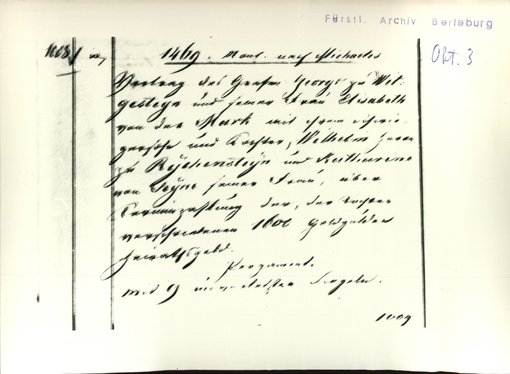 Fürstl. Archiv Berleburg
Okt. 3
1008
1469. Mont. nach Michaelis
Vertrag des Grafen George zu Wit-
gesteyn und seiner Frau Elisabeth
von der Mark mit ihrem Schwie-
gersohn und Tochter, Wilhelm Herrn
zu Rychensteyn und Katharina
von Seyne seiner Frau, über
der, der Tochter
verschriebenen 1600 Goldgulden
Heirathsgeld.
Pergament.
Mit 9 Siegeln.
1009